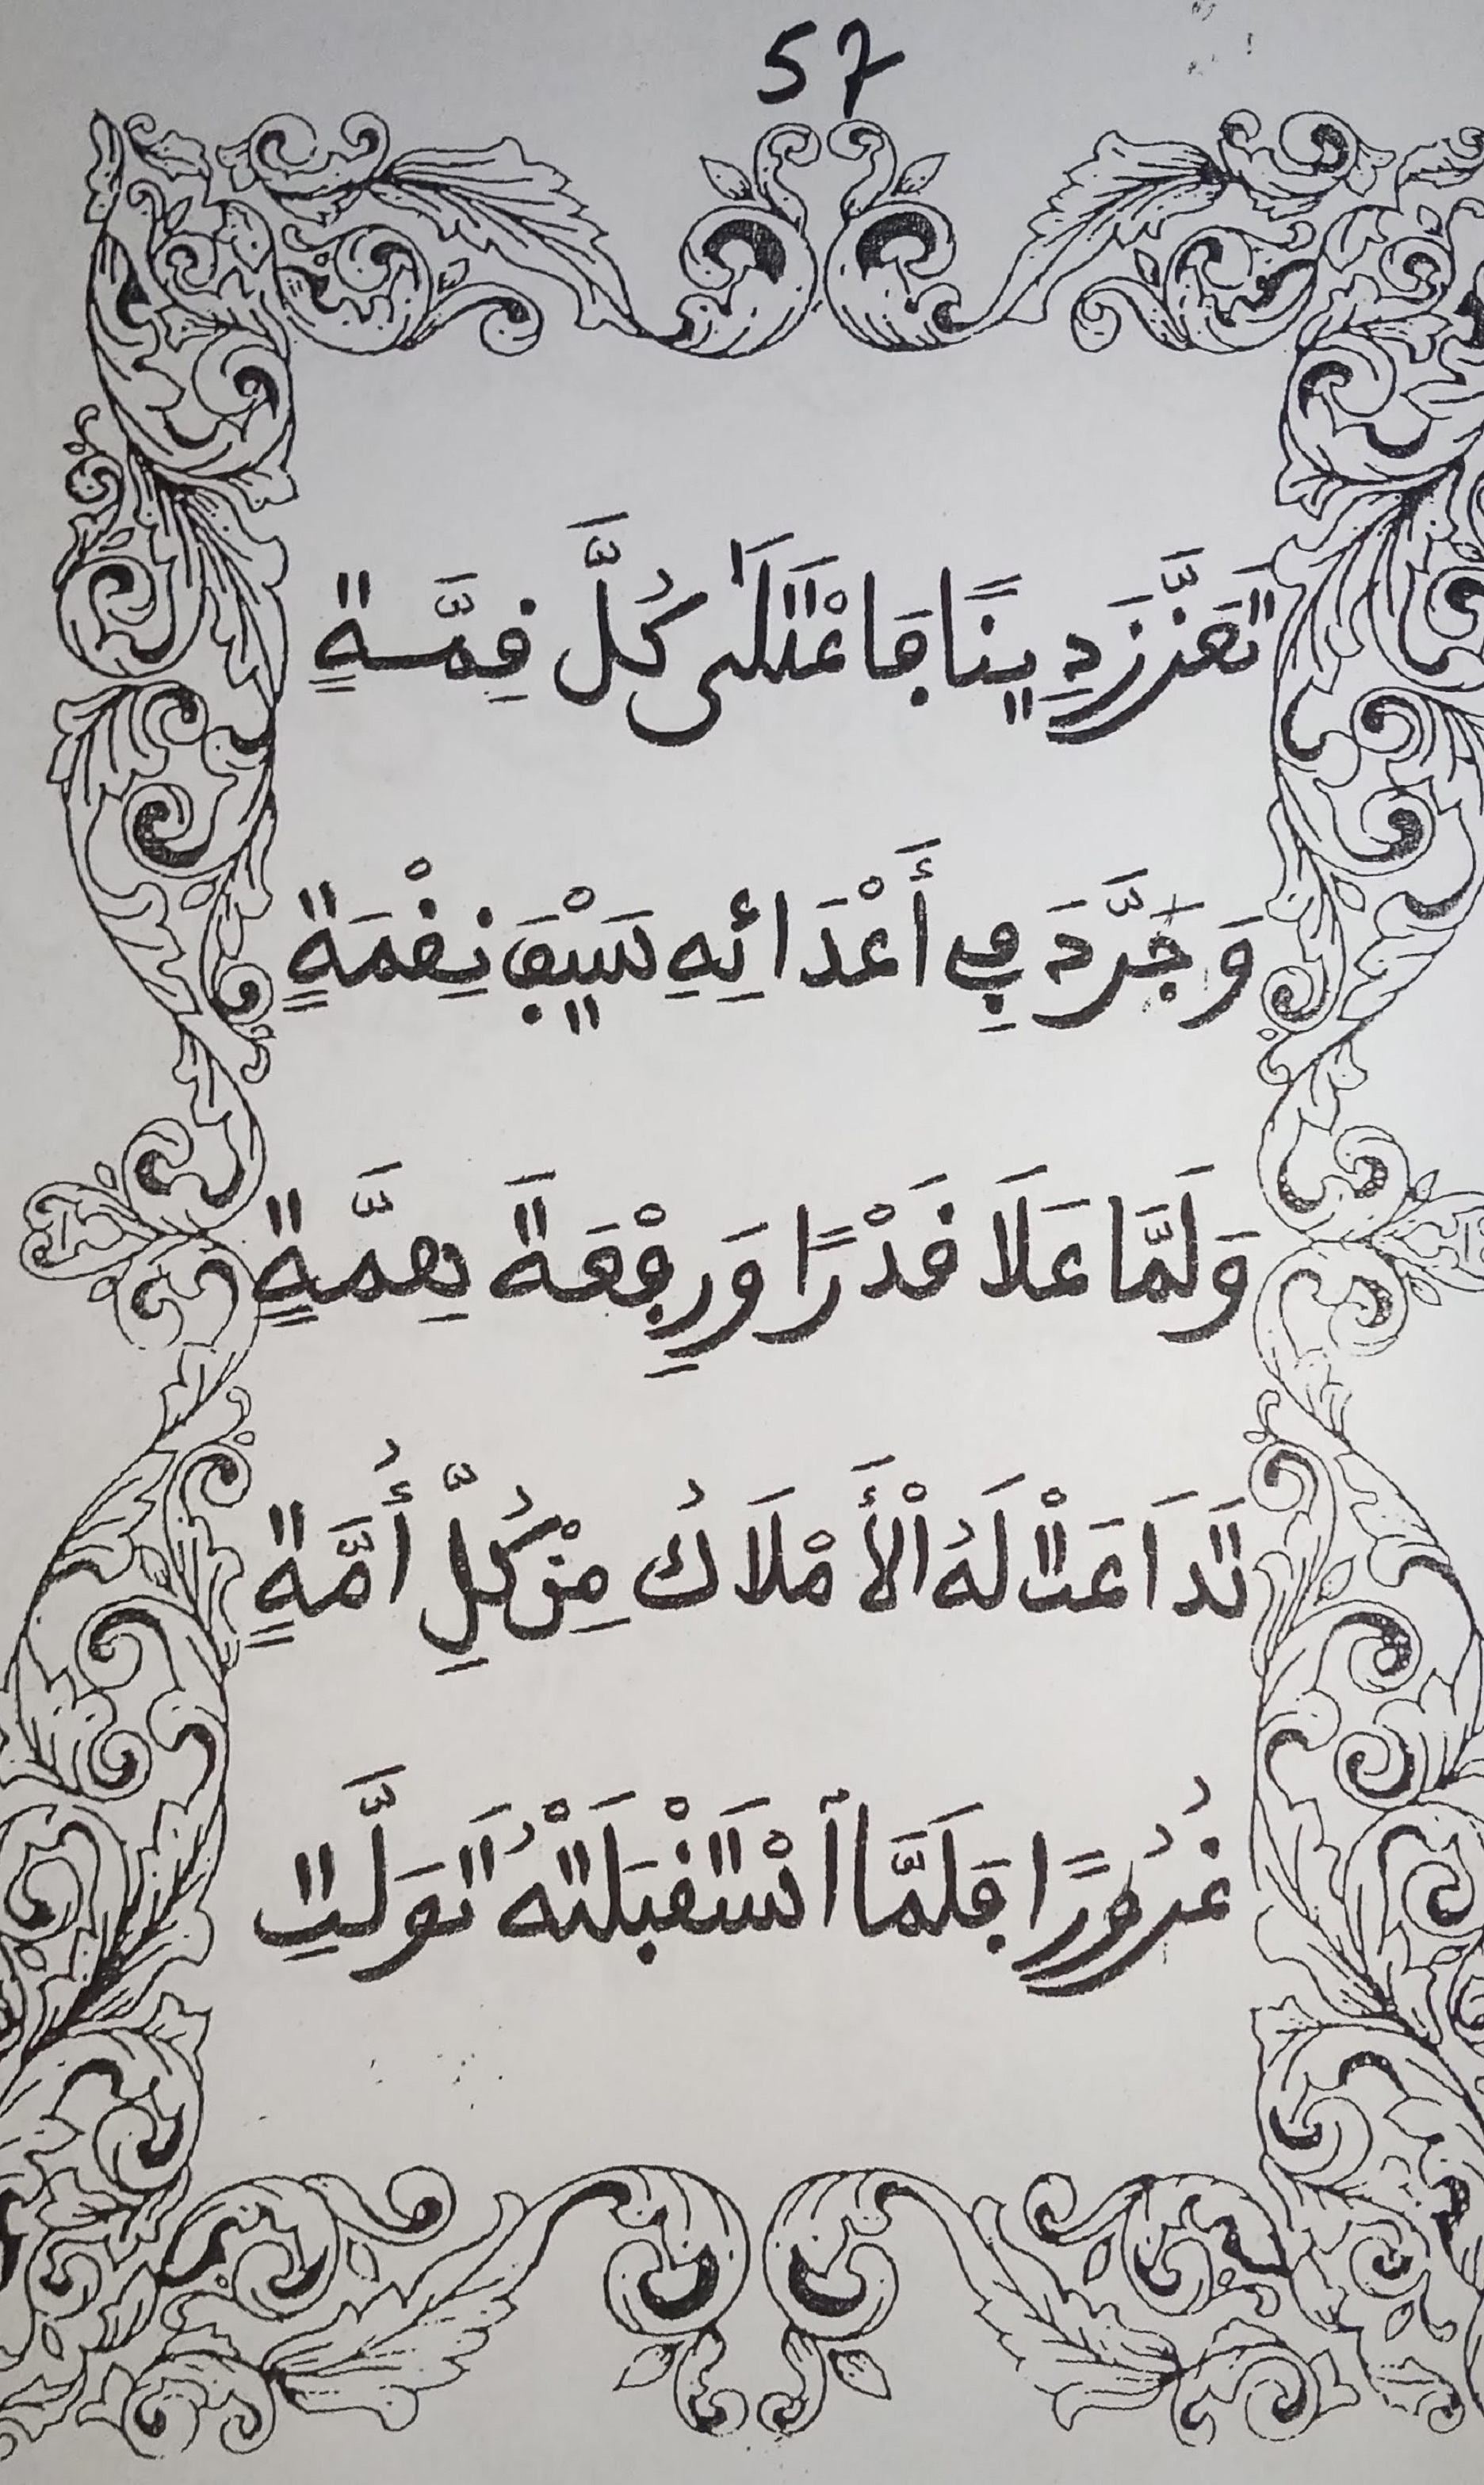 57
تَعَزَّزَ دِينًا فَاعْتَلَىٰ كُلَّ قِمَّةٍ
وَجَرَّدَ فِي أَعْدَائِهِ سَيْفَ نِقْمَةٍ
وَلَمَّا عَلَا قَدْرًا وَرِفْعَةَ هِمَّةٍ
تَدَاعَتْ لَهُ الْأَمْلَاكُ مِنْ كُلِّ أُمَّةٍ
غُرُورًا فَلَمَّا ٱسْتَقْبَلَتْهُ تَوَلَّتِ